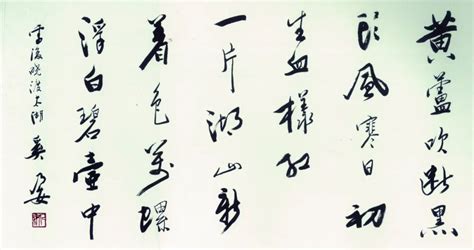 黃蘆吹斷黑
頭風寒日初
生血樣紅
一片湖山新
着色萬螺
浮白碧壺中
雪後曉渡太湖